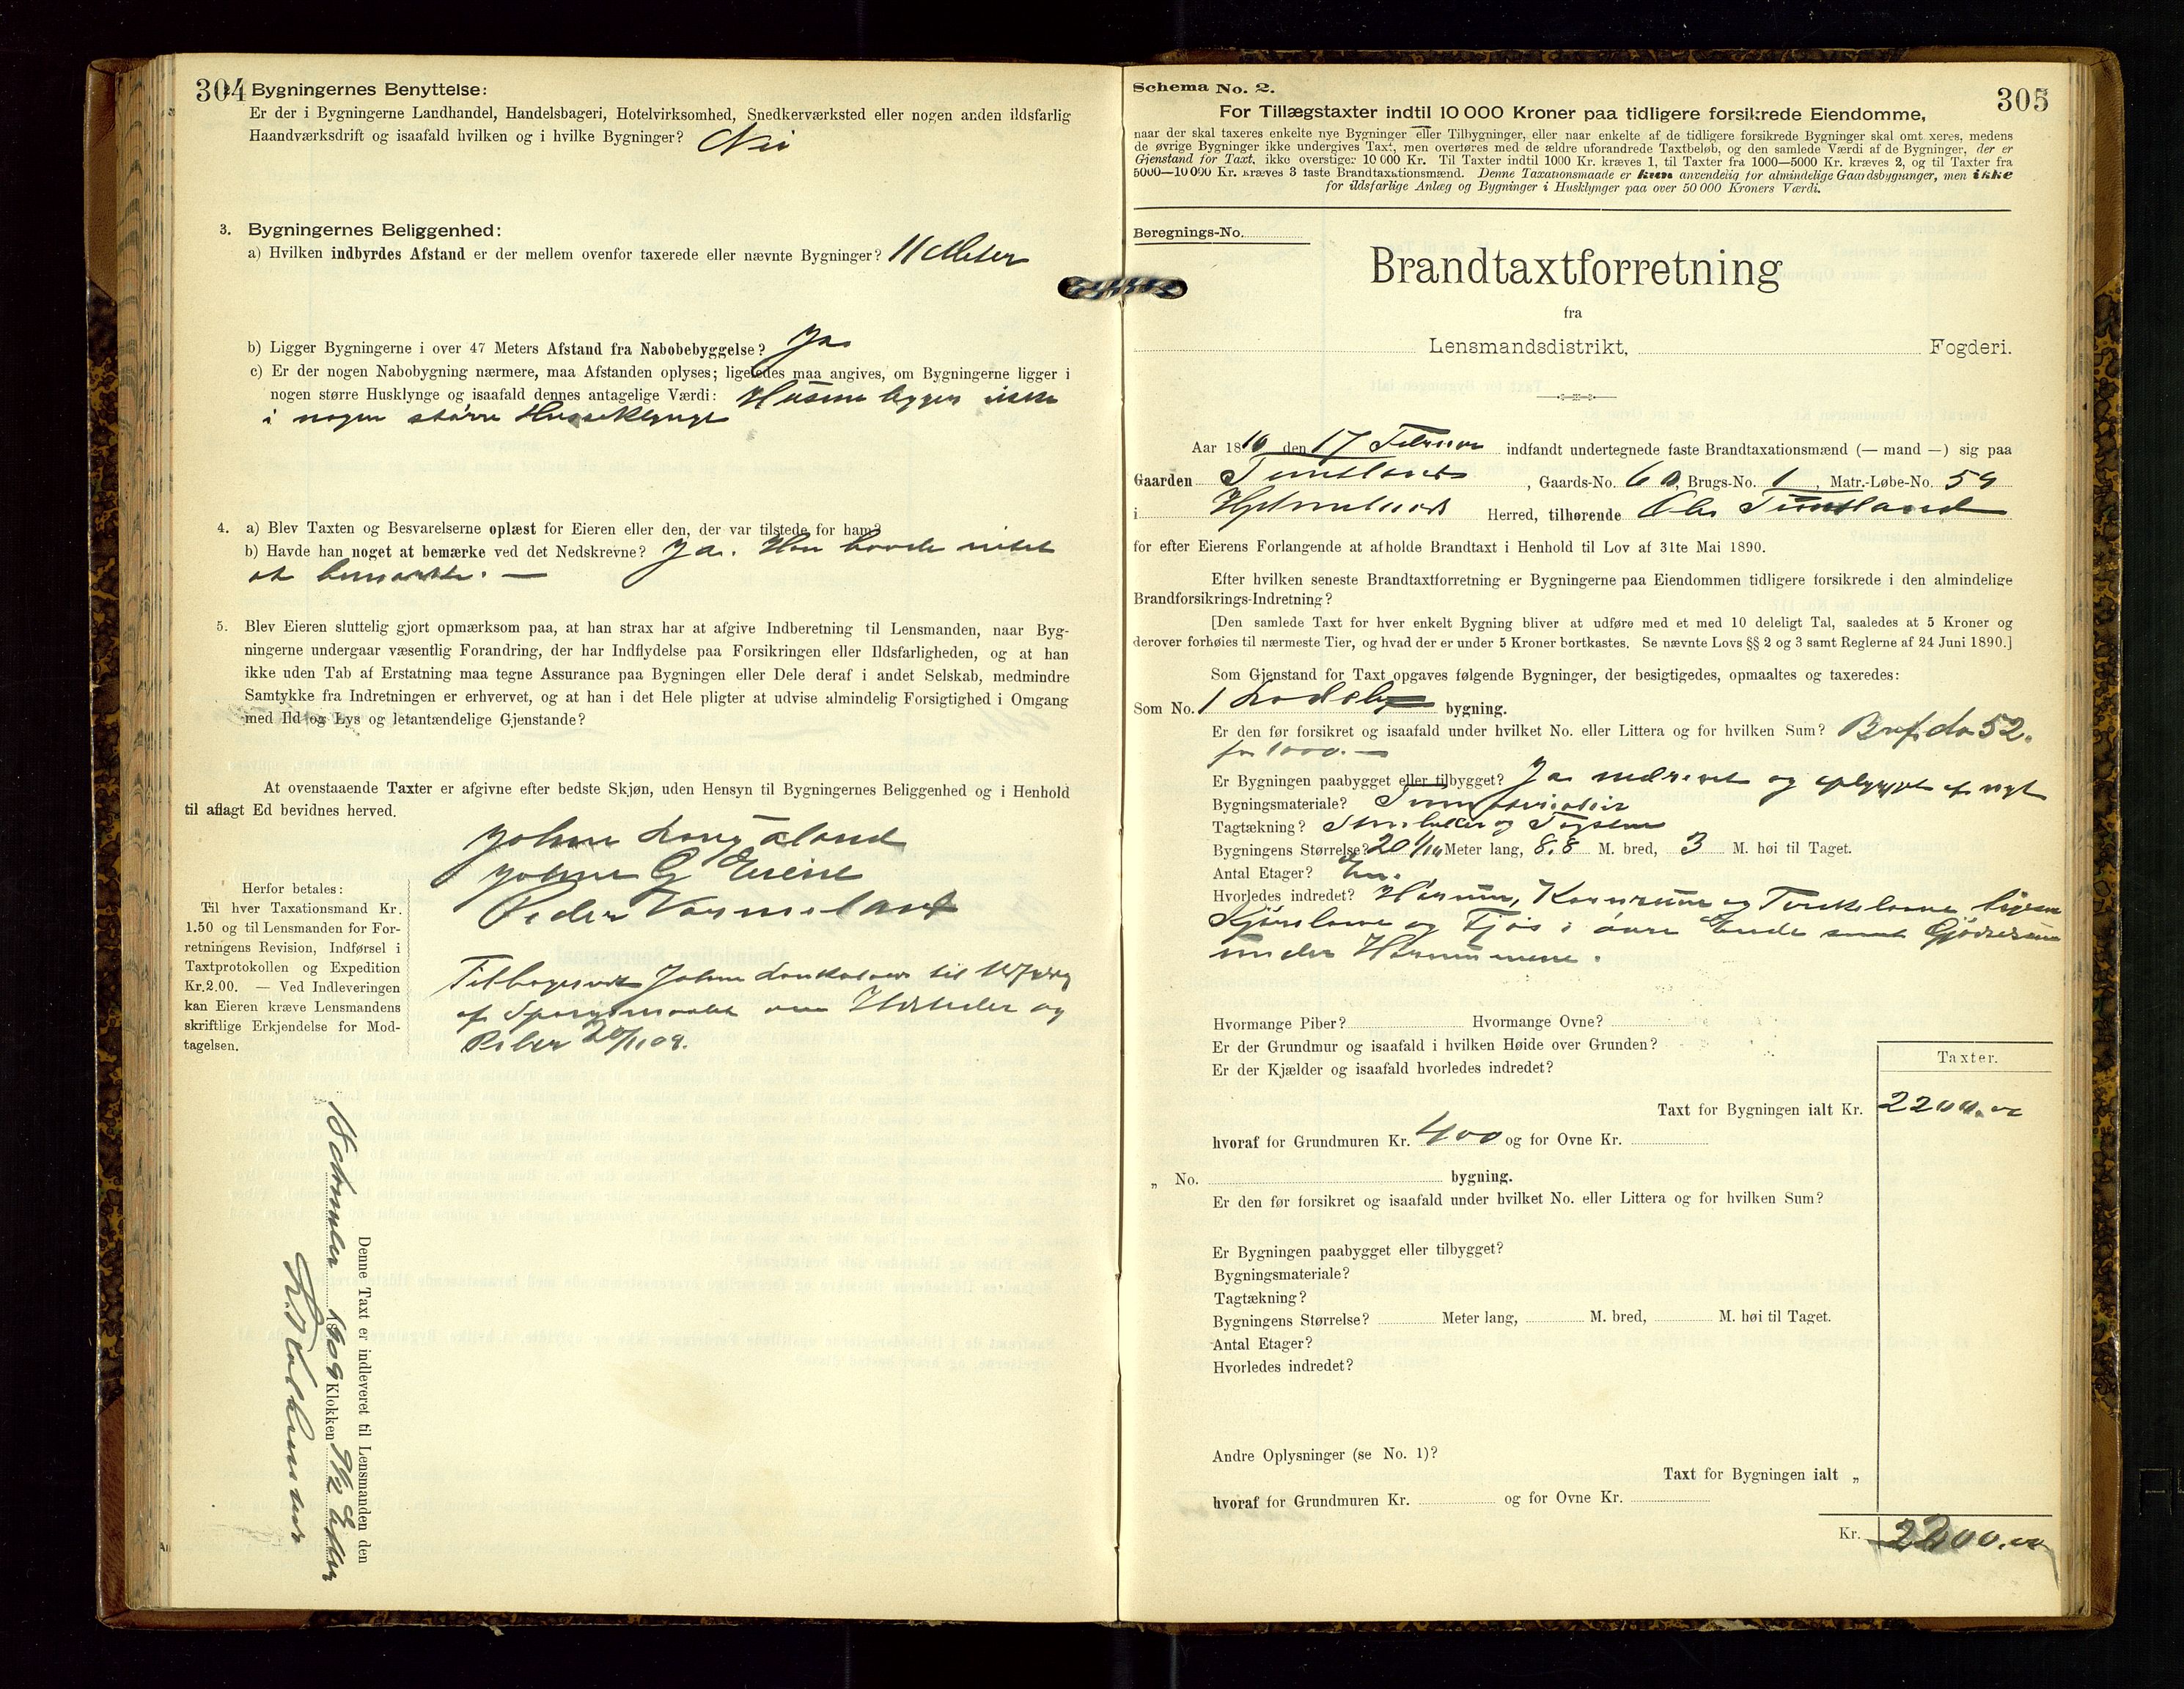 304
Bygningernes Benyttelse:
Er der i Bygningerne Landhandel, Handelsbageri, Hotelvirksomhed, Snedkerværksted eller nogen anden ildsfarlig
Haandværksdrift og isaafald hvilken og i hvilke Bygninger? Nei
3. Bygningernes Beliggenhed:
a) Hvilken indbyrdes Afstand er der mellem ovenfor taxerede eller nævnte Bygninger? 11 Meter
b) Ligger Bygningerne i over 47 Meters Afstand fra Nabobebyggelse? Ja
c) Er der nogen Nabobygning nærmere, maa Afstanden oplyses; ligeledes maa angives, om Bygningerne ligger i
nogen større Husklynge og isaafald dennes antagelige Værdi: Husene ligger ikke
i nogen større Husseklynge
4. a) Blev Taxten og Besvarelserne oplæst for Eieren eller den, der var tilstede for ham?
b) Havde han noget at bemærke ved det Nedskrevne? Ja. Han havde intet
at bemærke. —
5. Blev Eieren sluttelig gjort opmærksom paa, at han strax har at afgive Indberetning til Lensmanden, naar Byg-
ningerne undergaar væsentlig Forandring, der har Indflydelse paa Forsikringen eller Ildsfarligheden, og at han
ikke uden Tab af Erstatning maa tegne Assurance paa Bygningen eller Dele deraf i andet Selskab, medmindre
Samtykke fra Indretningen er erhvervet, og at han i det Hele pligter at udvise almindelig Forsigtighed i Omgang
med Ild og Lys og letantændelige Gjenstande?
At ovenstaaende Taxter er afgivne efter bedste Skjøn, uden Hensyn til Bygningernes Beliggenhed og i Henhold
til aflagt Ed bevidnes herved.
Johne
Johne G
Peder Vormeland
Herfor betales:
Til hver Taxationsmand Kr.
1.50 og til Lensmanden for For-
retningens Revision, Indførsel i
Taxtprotokollen og Expedition
Kr.2.00. — Ved Indleveringen
kan Eieren kræve Lensmandens
skriftlige Erkjendelse for Mod-
tagelsen.
Johne til
af Spørgsmaalet om og
Piber
Denne Taxt er indleveret til Lensmanden den
1909 Klokken
Schema No. 2.
305
For Tillægstaxter indtil 10 000 Kroner paa tidligere forsikrede Eiendomme,
naar der skal taxeres enkelte nye Bygninger eller Tilbygninger, eller naar enkelte af de tidligere forsikrede Bygninger skal omtaxeres, medens
de øvrige Bygninger ikke undergives Taxt, men overføres med de ældre uforandrede Taxtbeløb, og den samlede Værdi af de Bygninger, der er
Gjenstand for Taxt, ikke overstiger 10 000 Kr. Til Taxter indtil 1000 Kr. kræves 1, til Taxter fra 1000—5000 Kr. kræves 2, og til Taxter fra
5000—10 000 Kr. kræves 3 faste Brandtaxationsmænd. Denne Taxationsmaade er kun anvendelig for almindelige Gaardsbygninger, men ikke
for ildsfarlige Anlæg og Bygninger i Husklynger paa over 50 000 Kroners Værdi.
Beregnings-No.
Brandtaxtforretning
fra
Lensmandsdistrikt, Fogderi.
Aar 1810 den 17 Februar indfandt undertegnede faste Brandtaxationsmænd (— mand —) sig paa
Gaarden Tuntland, Gaards-No. 60, Brugs-No. 1, Matr.-Løbe-No. 59
i Hjelmeland Herred, tilhørende Ole Tuntland
for efter Eierens Forlangende at afholde Brandtaxt i Henhold til Lov af 31te Mai 1890.
Efter hvilken seneste Brandtaxtforretning er Bygningerne paa Eiendommen tidligere forsikrede i den almindelige
Brandforsikrings-Indretning?
[Den samlede Taxt for hver enkelt Bygning bliver at udføre med et med 10 deleligt Tal, saaledes at 5 Kroner og
derover forhøies til nærmeste Tier, og hvad der er under 5 Kroner bortkastes. Se nævnte Lovs §§ 2 og 3 samt Reglerne af 24 Juni 1890.]
Som Gjenstand for Taxt opgaves følgende Bygninger, der besigtigedes, opmaaltes og taxeredes:
Som No. 1 bygning.
Er den før forsikret og isaafald under hvilket No. eller Littera og for hvilken Sum? 52.
for 1000. —
Er Bygningen paabygget eller tilbygget? Ja nedrevet og opbygget af nyt
Bygningsmateriale?
Tagtækning? og Tagsten
Bygningens Størrelse? 20 1/10 Meter lang, 8.8 M. bred, 3 M. høi til Taget.
Antal Etager? En.
Hvorledes indredet? Hørum, Kornrum og
og Fjøs i øvre Ende samt Gjødselrum
under Hørummene.
Hvormange Piber? Hvormange Ovne?
Er der Grundmur og isaafald i hvilken Høide over Grunden?
Er der Kjælder og isaafald hvorledes indredet?
Taxter.
Taxt for Bygningen ialt Kr. 2200.00
hvoraf for Grundmuren Kr. 400 og for Ovne Kr.
„ No. bygning.
Er den før forsikret og isaafald under hvilket No. eller Littera og for hvilken Sum?
Er Bygningen paabygget eller tilbygget?
Bygningsmateriale?
Tagtækning?
Bygningens Størrelse? Meter lang, M. bred, M. høi til Taget.
Antal Etager?
Hvorledes indredet?
Andre Oplysninger (se No. 1)?
Taxt for Bygningen ialt „
hvoraf for Grundmuren Kr. og for Ovne Kr.
Kr. 2200.00